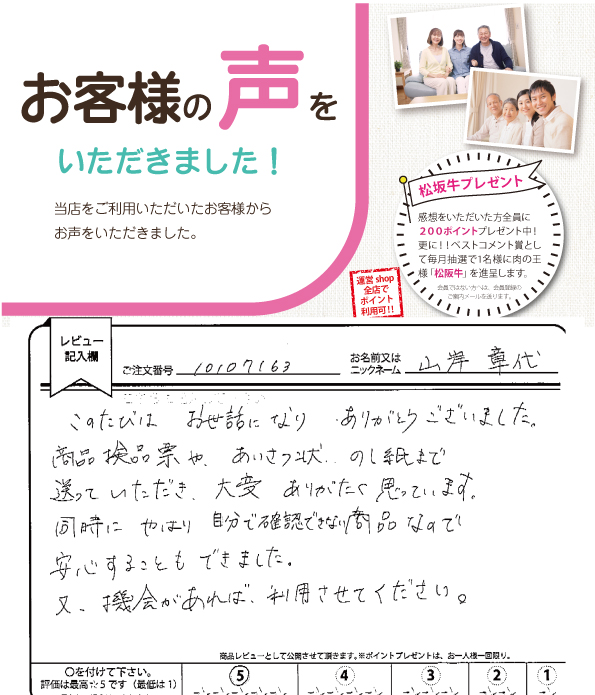 お客様の声を
いただきました！
当店をご利用いただいたお客様から
お声をいただきました。
松坂牛プレゼント
感想をいただいた方全員に
２００ポイントプレゼント中！
更に！！ベストコメント賞とし
て毎月抽選で1名様に肉の王
様「松阪牛」を進呈します。
会員ではない方へは、会員登録の
ご案内メールを送ります。
運営 shop
全店で
ポイント
利用可!!
レビュー
記入欄
ご注文番号 10107163
お名前又は
ニックネーム 山岸 章代
このたびは お世話になり ありがとうございました。
商品検品票や、あいさつ状、のし紙まで
送っていただき、大変 ありがたく思っています。
同時に やはり 自分で確認できない商品なので
安心することもできました。
又、機会があれば、利用させてください。
商品レビューとして公開させて頂きます。※ポイントプレゼントは、お一人様一回限り。
〇を付けて下さい。
評価は最高☆5です（最低は1）
⑤ ④ ③ ② ①